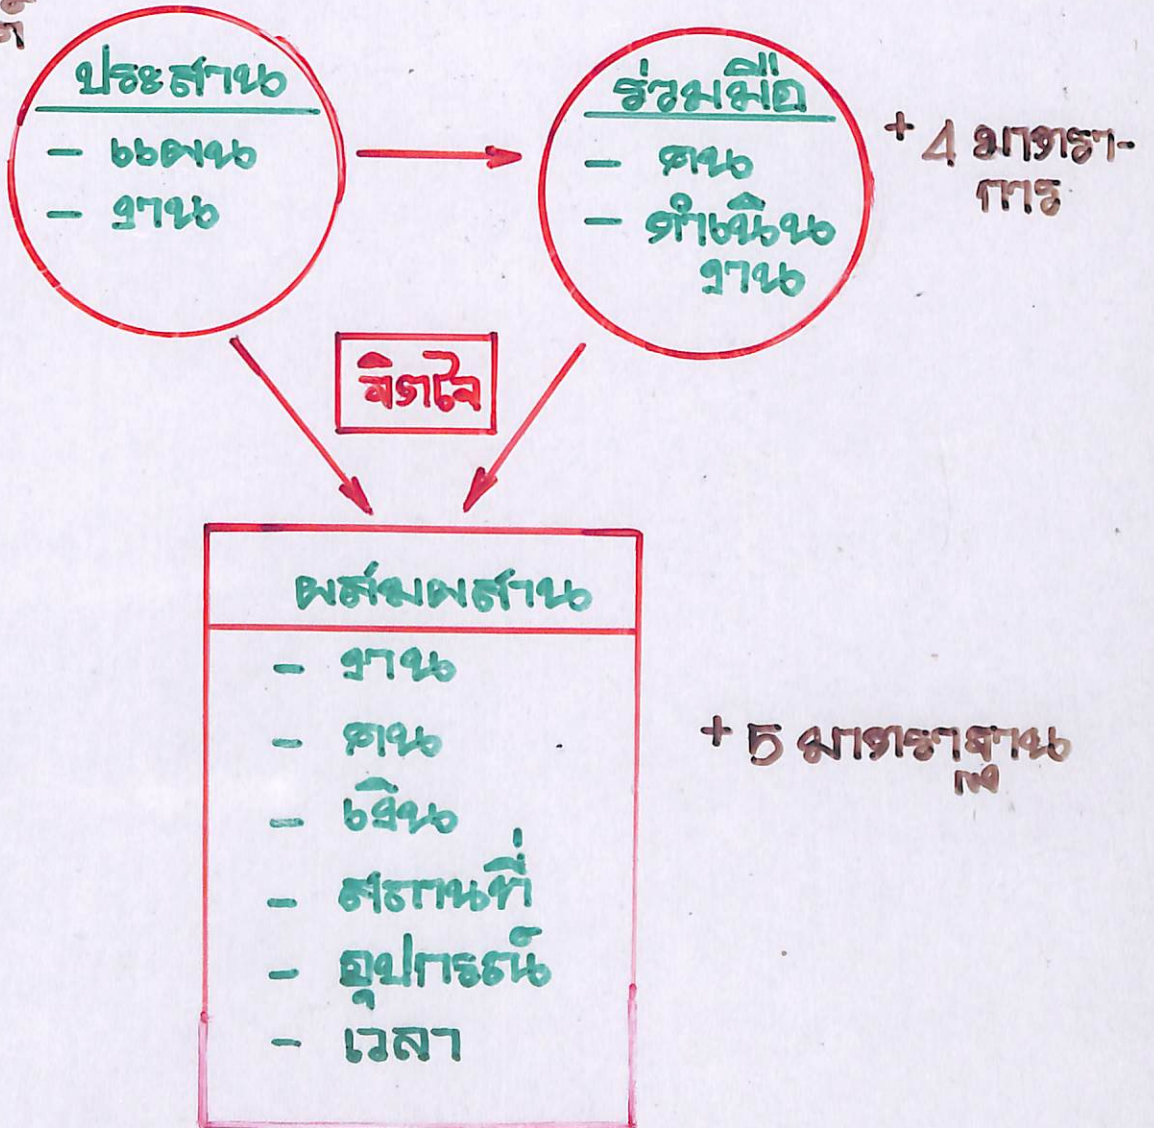 ประสาน
- แผน
- งาน
ร่วมมือ
- คน
- ดำเนิน
งาน
+ 4 มาตรา-
การ
ผสมผสาน
- งาน
- คน
- เงิน
- สถานที่
- อุปกรณ์
- เวลา
+ 5 มาตราฐาน